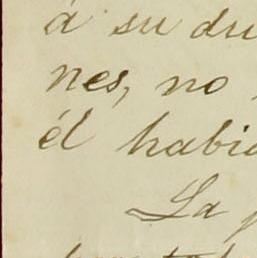 á su du
nes, no
él habia
La